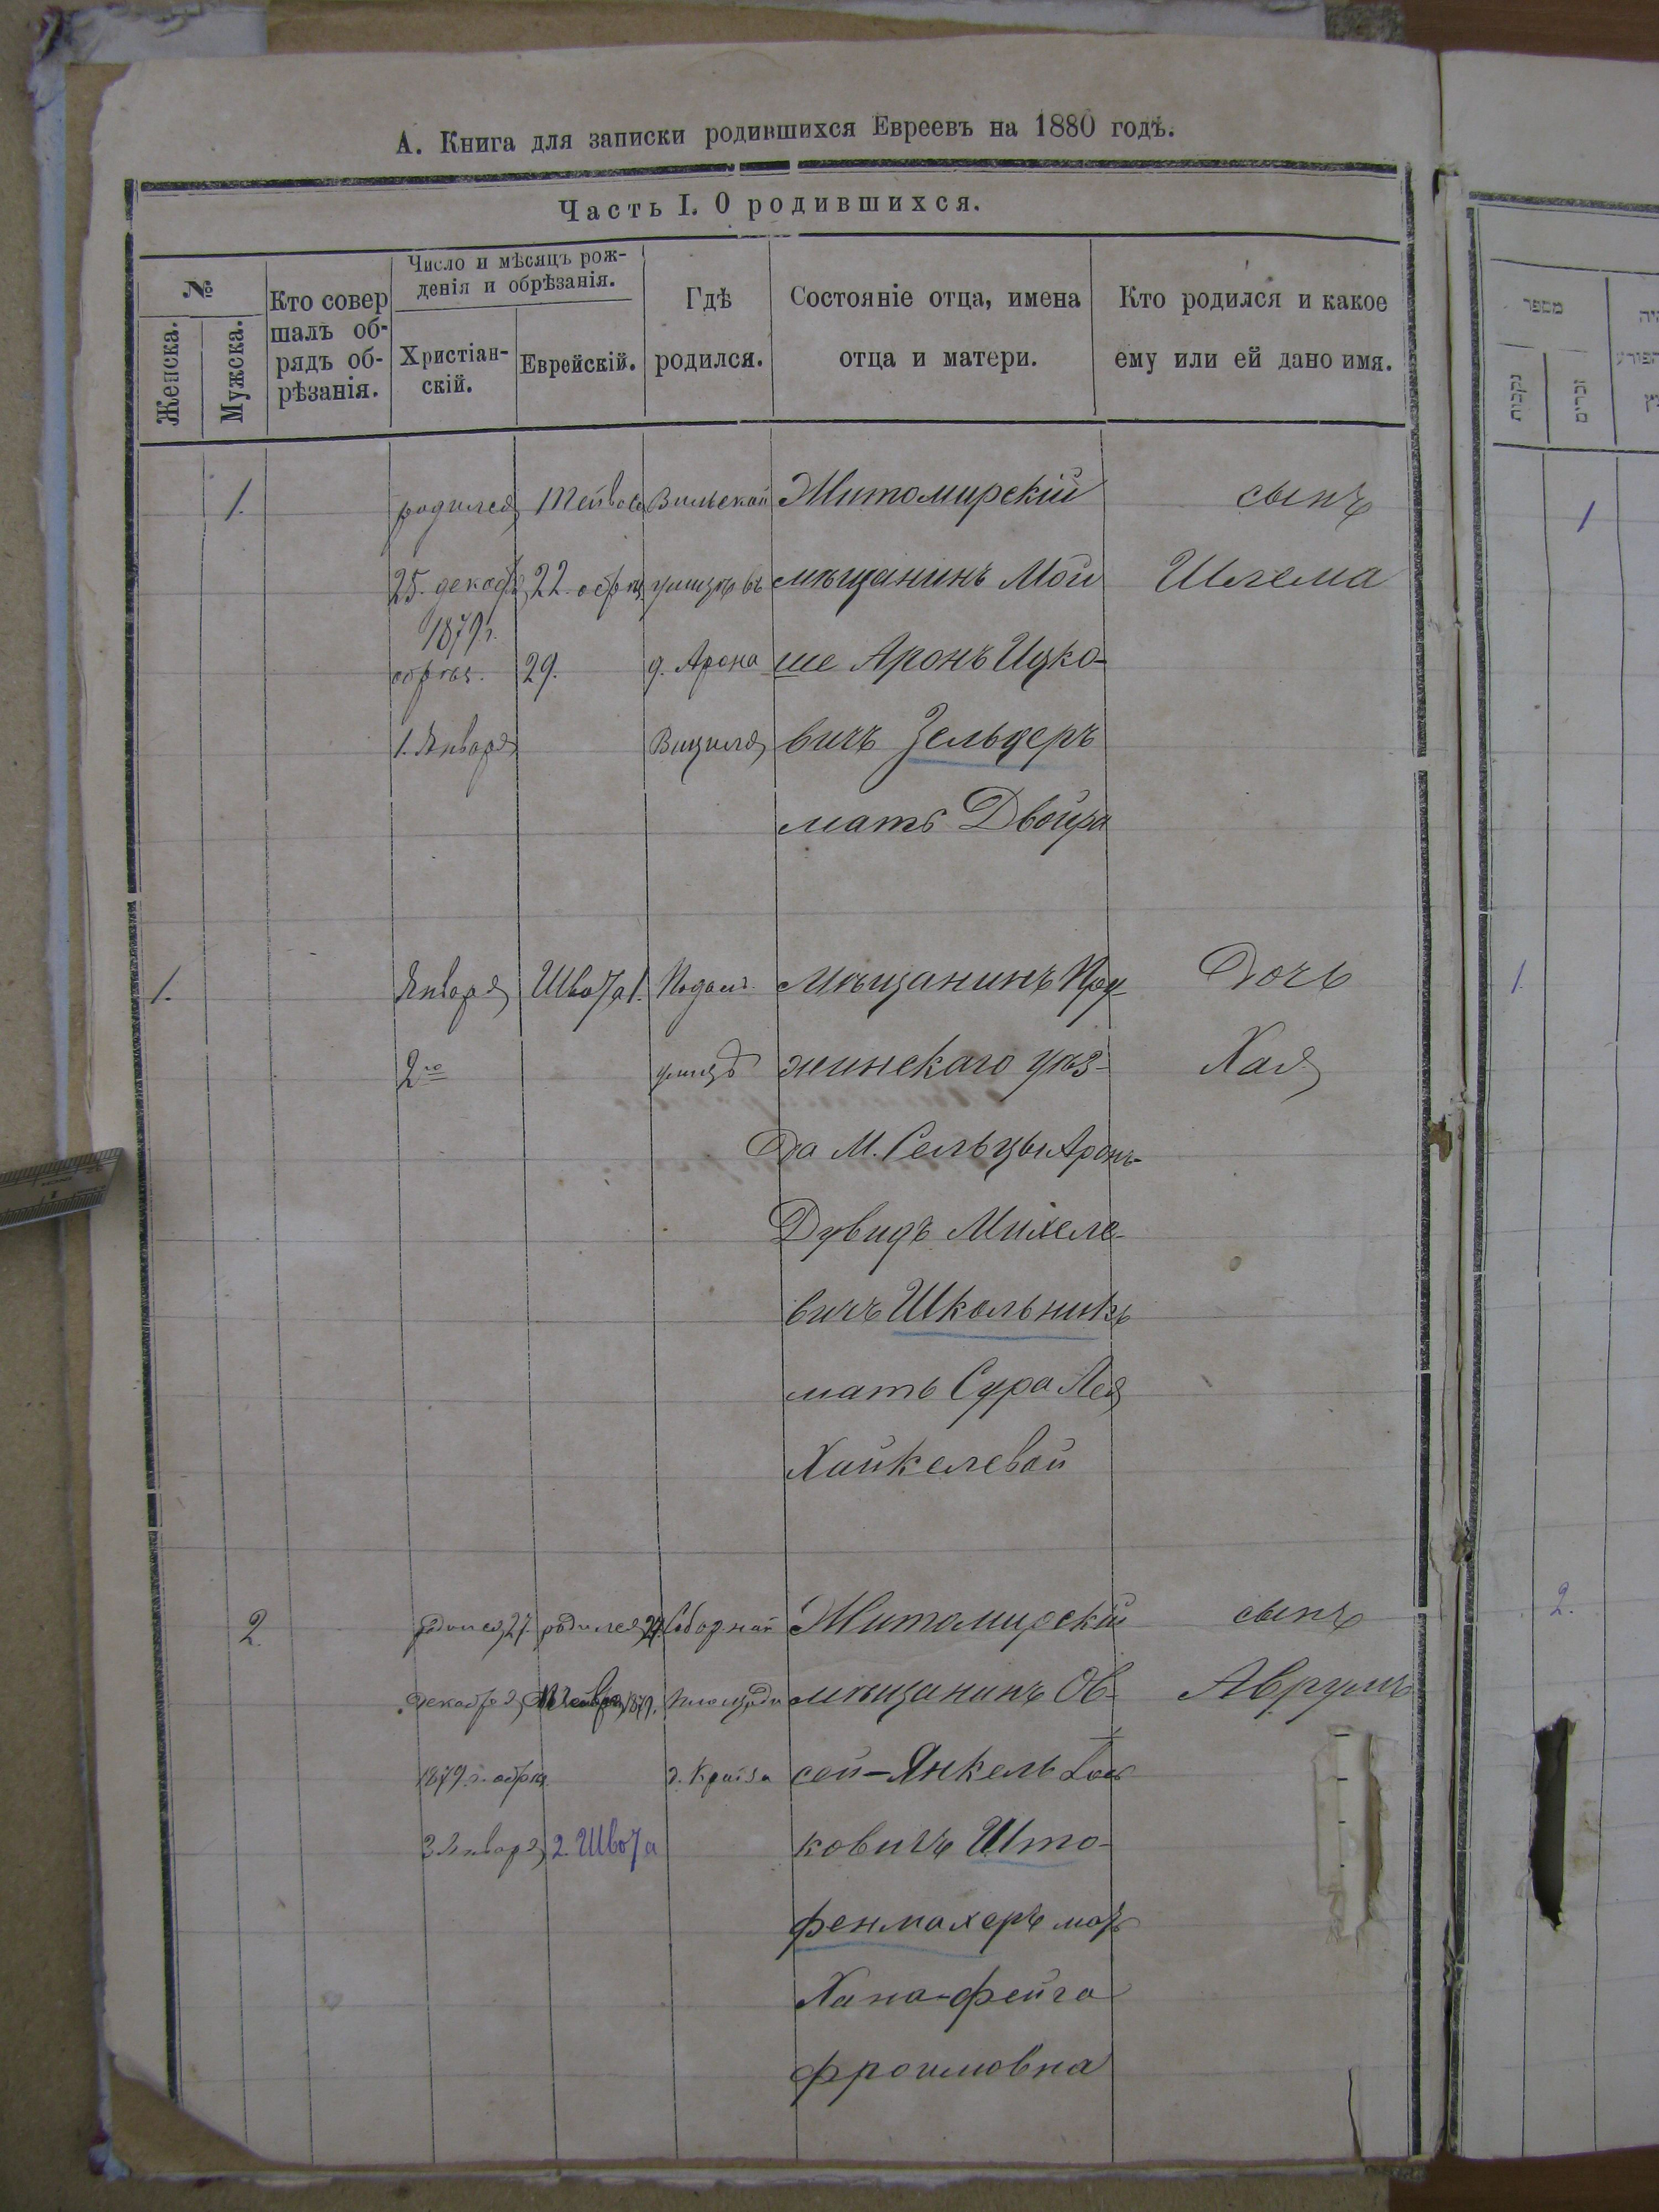 А. Книга для записки родившихся Евреевъ на 1880 годъ.
Часть I. О родившихся.
№
Женска.
Мужска.
Кто совер
шалъ об-
рядъ об-
рѣзанія.
Число и мѣсяцъ рож-
денія и обрѣзанія.
Христіан-
скій.
Еврейскій.
Гдѣ
родился.
Состояніе отца, имена
отца и матери.
Кто родился и какое
ему или ей дано имя.
1.
родился
25. декабр
1879 г.
обрѣз.
1. Января
Тейвеса
22. обрѣз
29.
Вильской
улицѣ въ
д. Арона
Вицуля
Житомирскій
мѣщанинъ Мой
ше Аронъ Ицко-
вичъ Зельцеръ
мать Двойра
сынъ
Шлема
1.
Января
2го
Швота 1.
Подол.
улицѣ
Мѣщанинъ Пру-
жинскаго уѣз-
да М. Сельцы Аронъ-
Дувидъ Михеле-
вичъ Школьникъ
мать Сура Лея
Хайкелевой
Дочь
Хая
2.
родился 27.
декабря
1879. г. обрѣз.
2 Января
родился 24.
Тейвеса 1879.
2. Швота
Соборной
площади
д. Крайза
Житомирскій
мѣщанинъ Ов-
сей-Янкель
ковичъ Што-
фенмахеръ мать
Хана-Фейга
Фроимовна
сынъ
Аврумъ
מספר
נקבות
זכרים
1
1.
2.